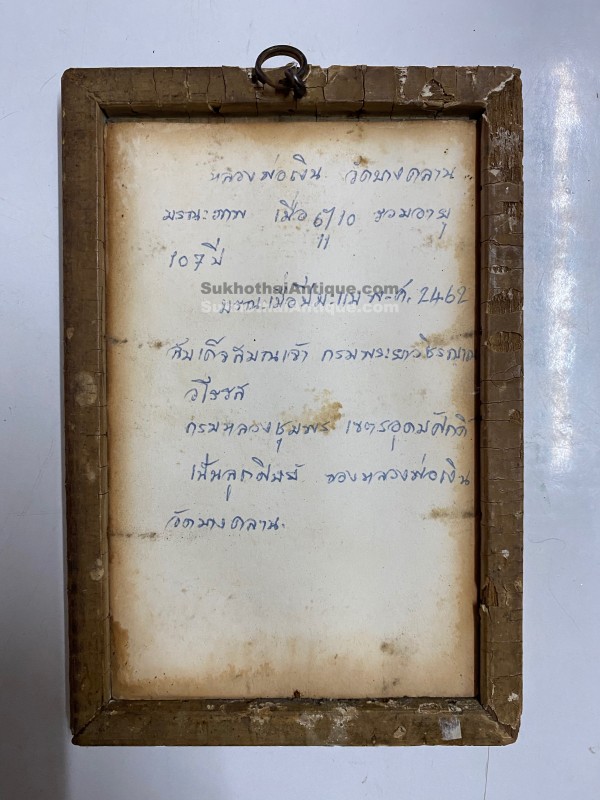 หลวงพ่อเงิน วัดบางคลาน
มรณะภาพ เมื่อ ๖/10 รวมอายุ
11
107 ปี
SukhothaiAntique.com
มรณะเมื่อปีมะแม พ.ศ. 2462
สมเด็จสมณเจ้า กรมพระยาวชิรญาณ
วโรรส
กรมหลวงชุมพร เขตรอุดมศักดิ์
เป็นลูกศิษย์ ของหลวงพ่อเงิน
วัดบางคลาน.